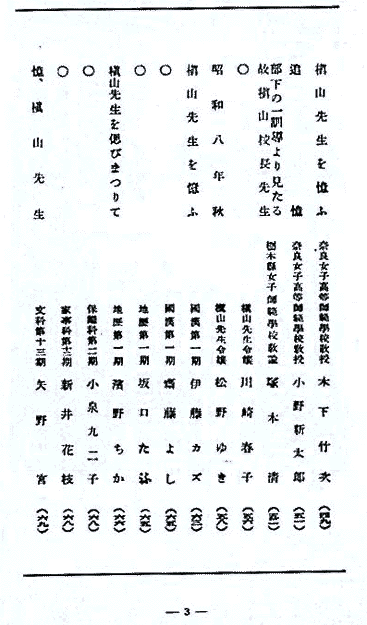 槇山先生を憶ふ 奈良女子高等師範學校教授 木下竹次 (四九)
追憶 奈良女子高等師範學校教授 小野新太郎 (五一)
部下の一訓導より見たる
故槇山校長先生 栃木縣女子師範學校教諭 塚木清 (五二)
○ 槇山先生令孃 川崎春子 (五六)
昭和八年秋 槇山先生令孃 松野ゆき (五八)
槇山先生を憶ふ 國漢第一期 伊藤カズ (六三)
○ 國漢第一期 齋藤よし (六五)
○ 地歷第一期 坂口た (六五)
槇山先生を偲びまつりて 地歷第一期 濱野ちか (六六)
○ 保姆科第二期 小泉九二子 (六八)
○ 家事科第十三期 新井花枝 (六八)
憶、槇山先生 文科第十三期 矢野宮 (六九)
— 3 —